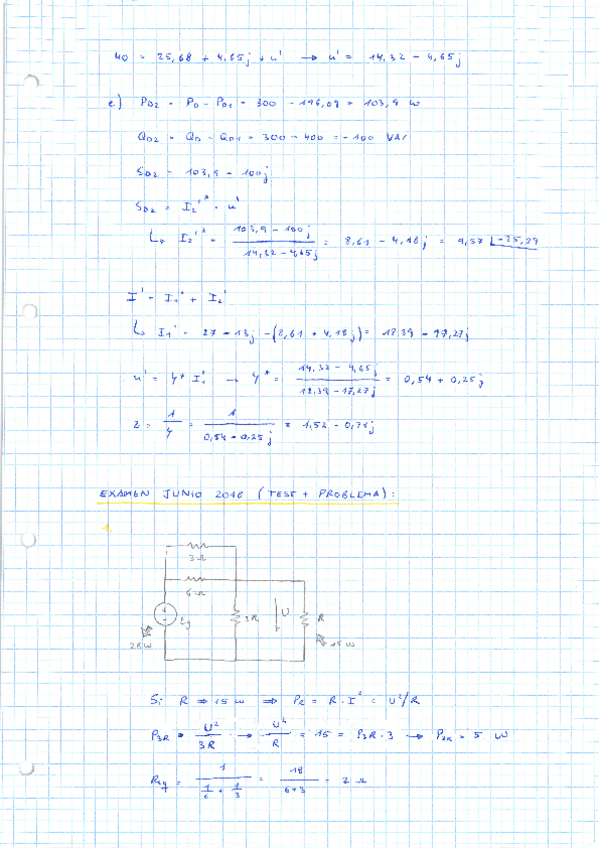 40 = 25,68 + 4,65j + u' → u' = 14,32 - 4,65j
e.) PD2 = PD - PD1 = 300 - 196,09 = 103,9 W
QD2 = QD - QD1 = 300 - 400 = -100 VAr
SD2 = 103,9 - 100j
SD2 = I2'* · u'
↳ I2'* = (103,9 - 100j) / (14,32 - 4,65j) = 8,61 - 4,18j = 9,57 ∟-25,29
I' = I1' + I2'
↳ I1' = 27 - 13j - (8,61 + 4,18j) = 18,39 - 17,27j
u' = Y* I1' → Y* = (14,32 - 4,65j) / (18,39 - 17,27j) = 0,54 + 0,25j
Z = 1/Y = 1 / (0,54 - 0,25j) = 1,52 - 0,75j
EXAMEN JUNIO 2018 (TEST + PROBLEMA):
1.
3Ω
6Ω
Eg 3R U R
28W 15W
Si R ⇒ 15 W ⇒ PR = R · I² = U²/R
P3R = U²/3R → U²/R = 15 = P3R · 3 → P3R = 5 W
Req = 1 / (1/6 + 1/3) = 18 / (6+3) = 2 Ω